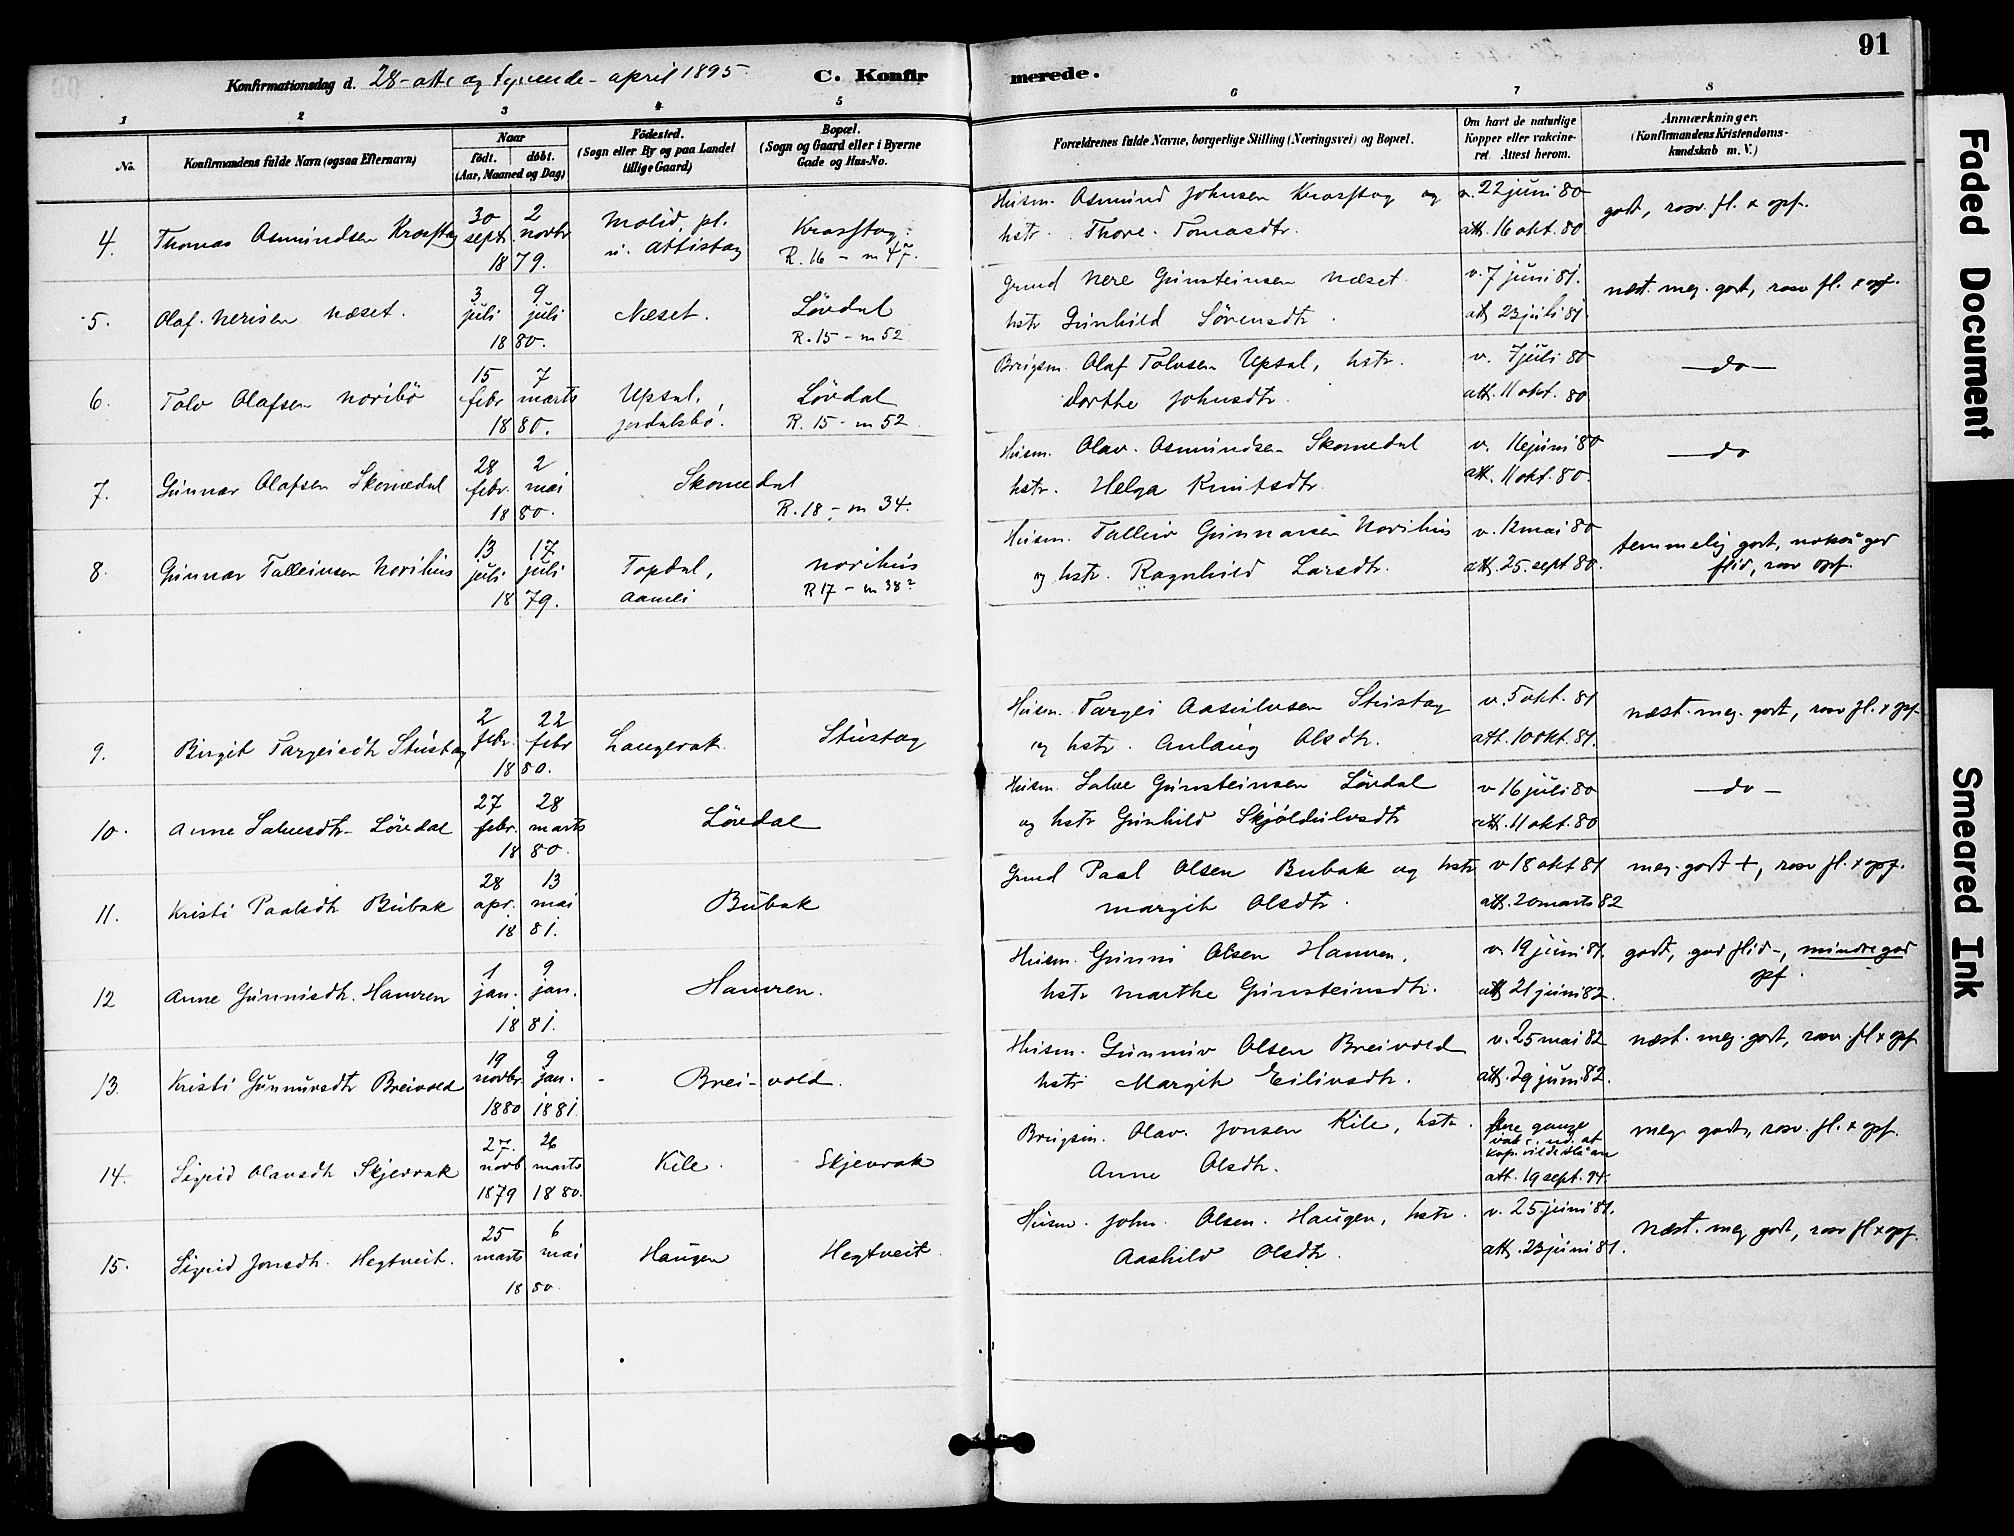 91
Konfirmationsdag d. 28 - otte og tyvende - april 1895.
C. Konfirmerede.
1 2 3 4 5 6 7 8
No.
Konfirmandens fulde Navn (ogsaa Efternavn)
Naar
født. døbt.
(Aar, Maaned og Dag)
Födested.
(Sogn eller By og paa Landet
tillige Gaard)
Bopæl.
(Sogn og Gaard eller i Byerne
Gade og Hus-No.
Forældrenes fulde Navne, borgerlige Stilling (Næringsvei) og Bopæl.
Om havt de naturlige
Kopper eller vakcine-
ret. Attest herom.
Anmærkninger.
(Konfirmandens Kristendoms-
kundskab m. V.)
4. Thomas Asmundsen Krossstog
30 sept. 2 novbr 1879.
Molid, pl. u. Attistog
Krossstog. R. 16 - m 47.
Husm. Asmund Johnsen Krossstog og
hstr. Thore Tomasdtr.
v. 22 juni 80
att. 16 okt. 80
godt, rosv. fl. & opf.
5. Olaf Nerisen Næset.
3 juli 9 juli 1880.
Næset.
Lövdal R. 15 - m 52
Grmd Nere Gunsteinsen Næset
hstr Gunhild Sörensdtr.
v. 7 juni 81.
att. 23 juli 81.
næst. meg. godt, rosv fl. & opf.
6. Tolv Olafsen Noribö
15 febr 7 marts 1880.
Upsal, jordalsbö.
Lövdal R. 15 - m 52
Brugsm. Olaf Tolvsen Upsal, hstr.
Dorthe Johnsdtr.
v. 7 juli 80
att. 11 okt. 80
- do -
7. Gunnar Olafsen Skomedal
28 febr. 2 mai 1880.
Skomedal
R. 18 - m 34.
Husm. Olav Asmundsen Skomedal
hstr. Helga Knutsdtr.
v. 16 juni 80
att. 11 okt. 80.
- do
8. Gunnar Talleivsen Norihus
13 juli 17 juli 1879.
Topdal, Aamli
Norihus R 17 - m 38
Husm. Talleiv Gunnarsen Norihus
og hstr. Ragnhild Larsdtr.
v. 12 mai 80
att. 25. sept 80.
temmelig godt, nokså god
flid, rosv opf.
9. Birgit Targeisdtr Stustog
2 febr. 22 febr 1880.
Langerak
Stustog
Husm. Targei Aasulvsen Stustog
og hstr. Anlaug Olsdtr.
v. 5 okt. 81
att. 10 okt. 81.
næst. meg. godt, rosv fl. & opf.
10. Anne Salvesdtr Lövdal
27 febr. 28 marts 1880.
Lövdal
Husm. Salve Gunsteinsen Lövdal
og hstr Gunhild Skjöldulvsdtr
v 16 juli 80
att. 11 okt. 80
- do -
11. Kristi Paalsdtr Bubak
28 apr. 13 mai 1881.
Bubak
Grmd Paal Olsen Bubak og hstr
Margit Olsdtr.
v 18 okt 81
att. 20 marts 82
meg. godt +, rosv fl. & opf.
12 Anne Gunnisdtr. Hamren
1 jan. 9 jan. 1881.
Hamren.
Husm. Gunni Olsen Hamren,
hstr Marthe Gunsteinsdtr.
v. 19 juni 81.
att 21 juni 82.
godt, god flid -, mindre god
opf.
13. Kristi Gunnuvsdtr Breivold
19 novbr. 1880 9 jan. 1881.
Brei-vold.
Husm. Gunnuv Olsen Breivold
hstr Margit Eilivsdtr.
v. 25 mai 82
att. 29 juni 82.
næst. meg. godt, rosv. fl & opf
14. Sigrid Olavsdtr Skjevrak
27. novb 1879 26 marts 1880.
Kile.
Skjevrak
Brugsm. Olav Jonsen Kile, hstr.
Anne Olsdtr.
flere gange
vakc. ud. at
kop. vilde slå an
att. 19 sept. 94.
meg godt, rosv. fl. & opf.
15. Sigrid Jonsdtr. Hegtveit.
25 marts 6 mai 1880.
Haugen
Hegtveit
Husm. John Olsen Haugen, hstr.
Aashild Olsdtr.
v. 25 juni 81.
att. 23 juni 81.
næst. meg godt, rosv fl & opf.
Faded Document
Smeared Ink